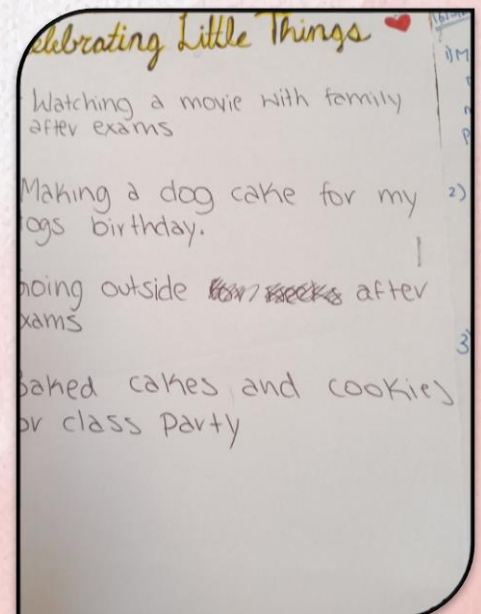 elebrating Little Things
Watching a movie with family
after exams
Making a dog cake for my
ogs birthday.
oing outside after
xams
Baked cakes and cookies
or class party
1)M
2)
3